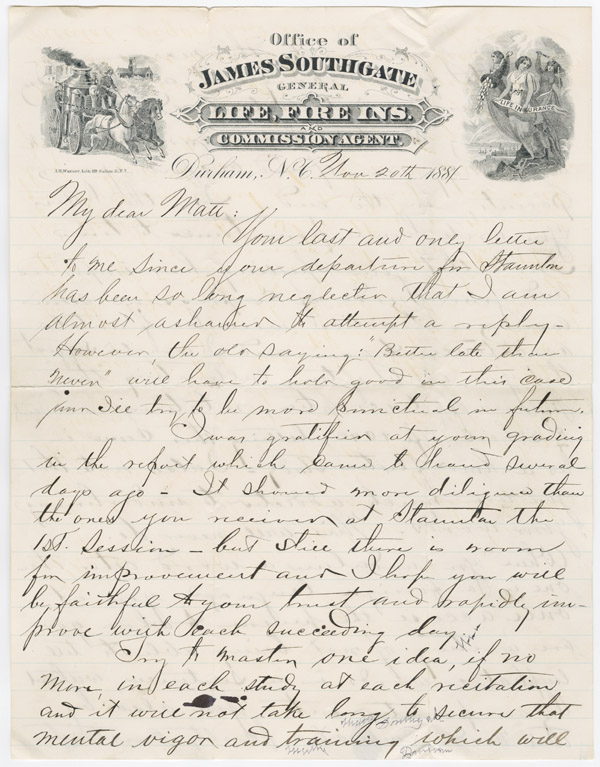 Office of
JAMES SOUTHGATE
GENERAL
LIFE, FIRE INS.
AND
COMMISSION AGENT.
LIFE INSURANCE
Durham, N.C. Nov 20th 1881
My dear Matt:
Your last and only letter
to me since your departure for Staunton,
has been so long neglected that I am
almost ashamed to attempt a reply-
However, the old saying: "Better late than
never" will have to hold good in this case
and I'll try to be more punctual in future.
I was gratified at your grading
in the report which came to hand several
days ago - It showed more diligence than
the ones you received at Staunton the
1st. Session - but still there is room
for improvement and I hope you will
be faithful to your trust and rapidly im-
prove with each succeeding day.
Try to master one idea, if no
more, in each study at each recitation
and it will not take long to secure that
mental vigor and training which will
Durham